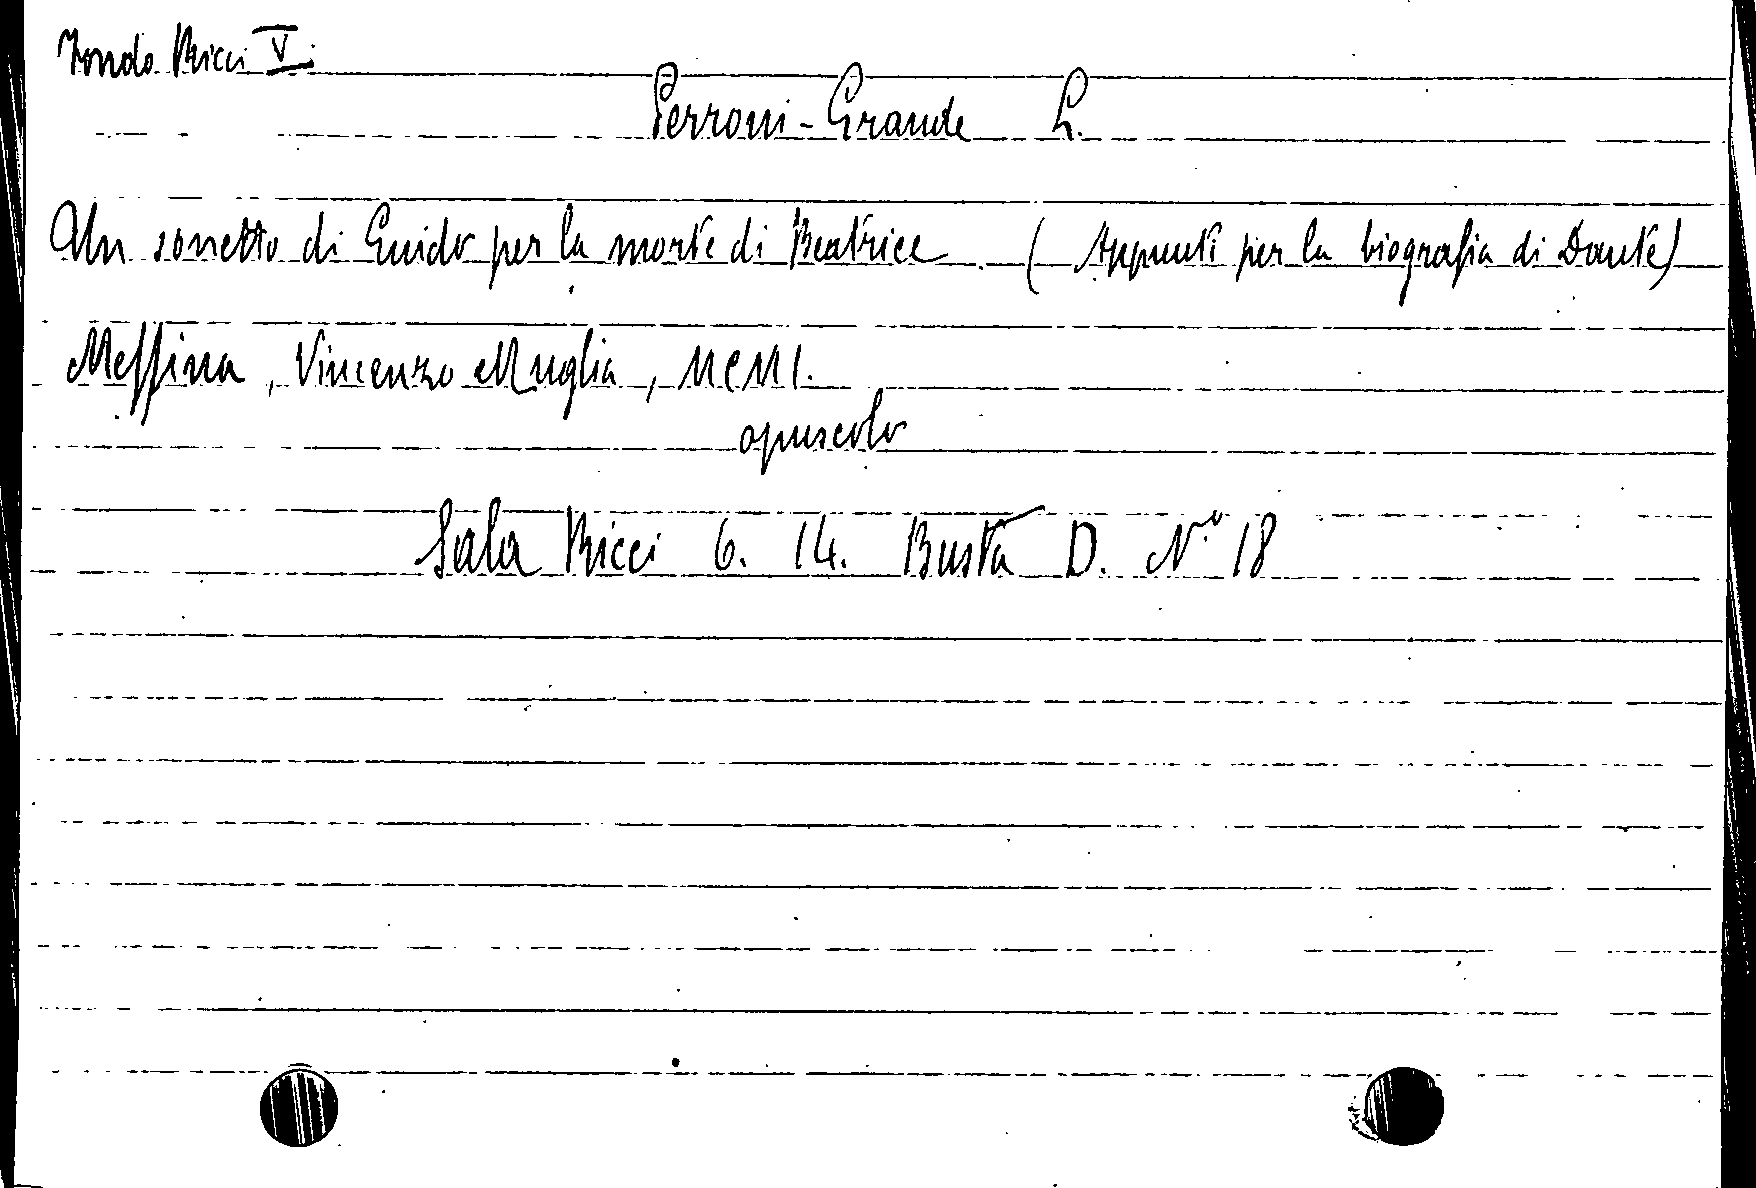 Fondo Ricci V.
Perroni-Grande L.
Un sonetto di Guido per la morte di Beatrice. (Appunti per la biografia di Dante)
Messina, Vincenzo Muglia, MCMI.
opuscolo
Sala Ricci 6. 14. Busta D. N.º 18